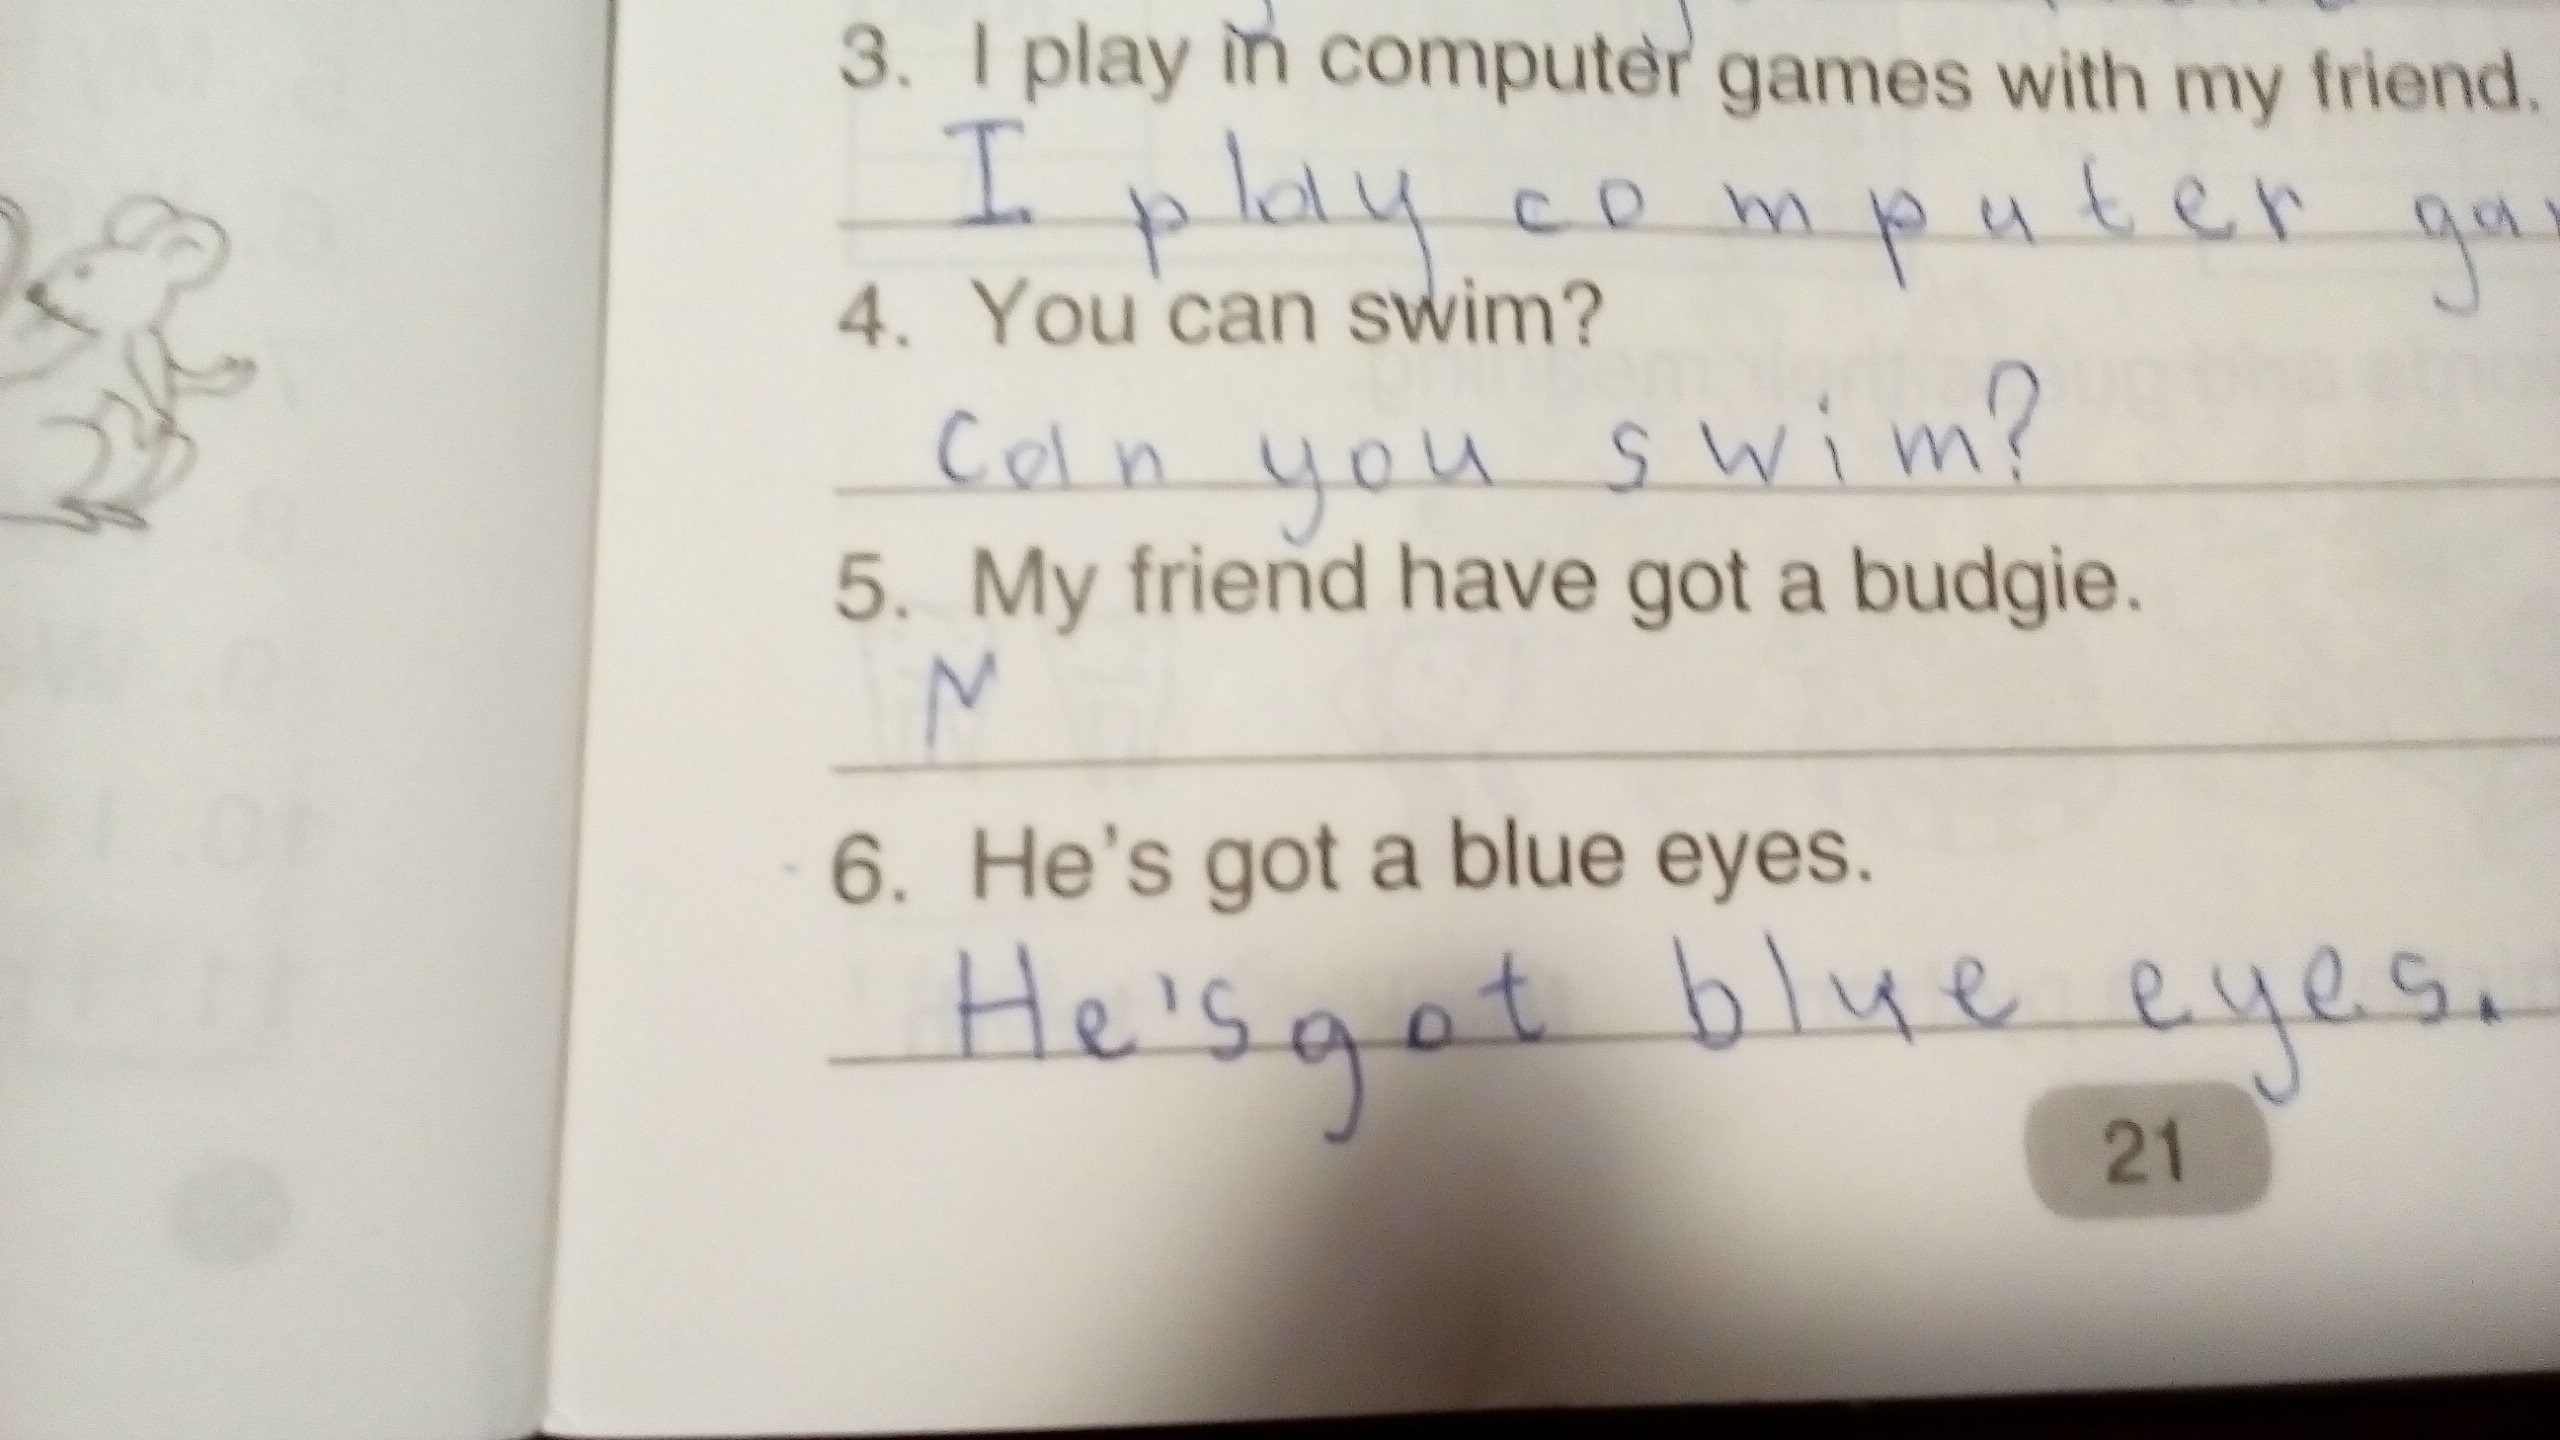 3. I play in computer games with my friend.
I play computer
4. You can swim?
Can you swim?
5. My friend have got a budgie.
6. He's got a blue eyes.
He's got blue eyes.
21